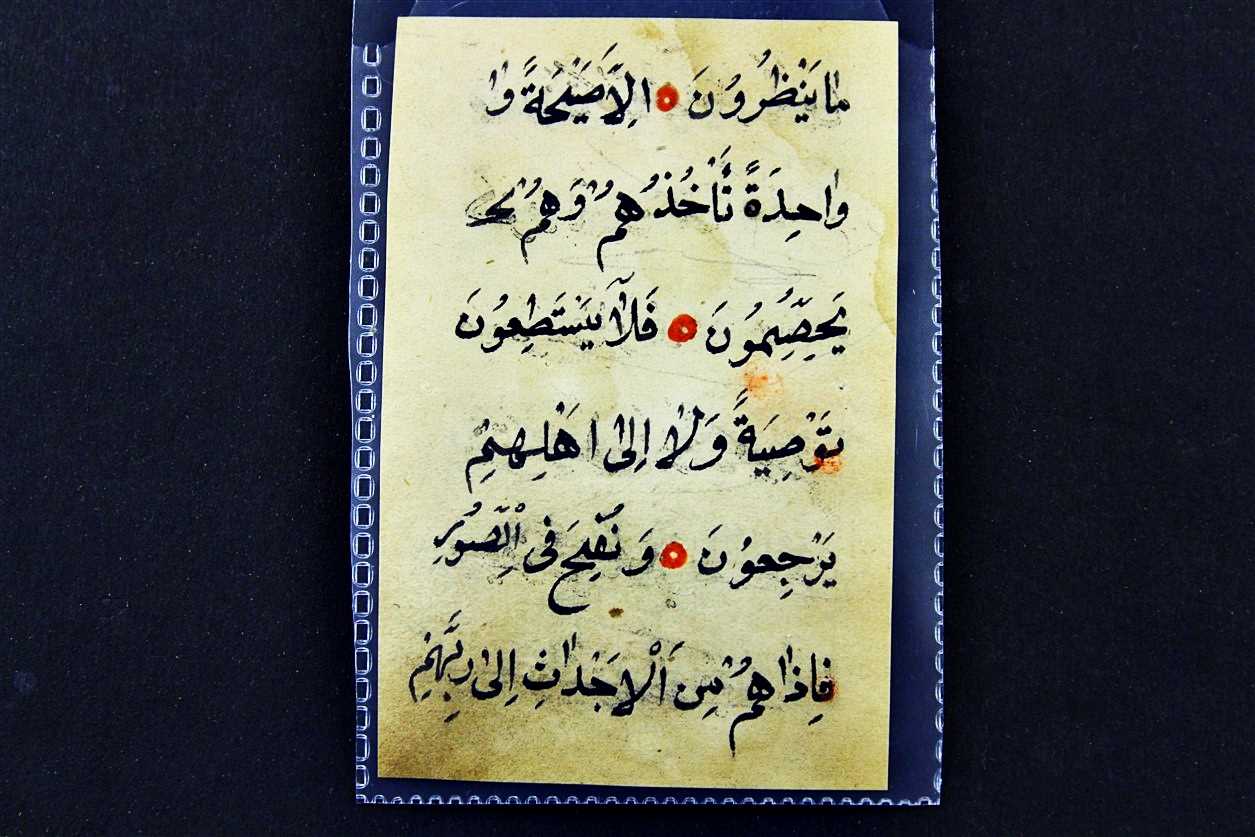 مٰا يَنْظُرُونَ اِلَّا صَيْحَةً وٰا
وٰاحِدَةً تَأْخُذُهُمْ وَهُمْ يَخِ
يَخِصِّمُونَ فَلَا يَسْتَطِعُونَ
تَوْصِيَةً وَلٰا اِلىٰ اَهْلِهِمْ
يَرْجِعُونَ وَ نُفِخَ فِى الصُّورِ
فَاِذٰا هُمْ مِنَ الْاَجْدٰاثِ اِلىٰ رَبِّهِمْ